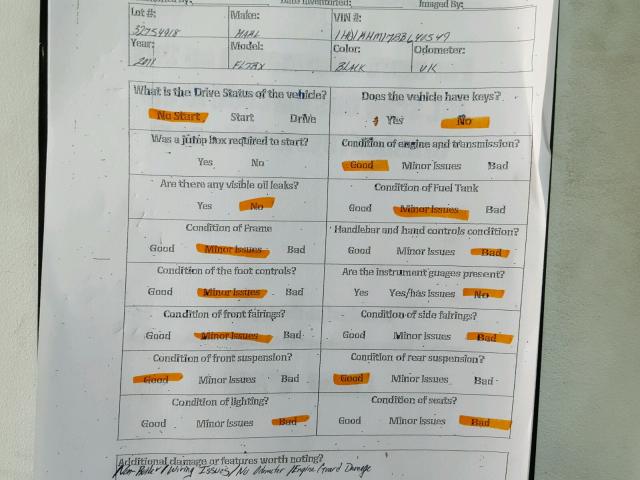 Imaged By:
Lot #: Make: VIN #:
32754918 HARL
Year: Model: Color: Odometer:
2011 FLTRX BLACK UK
What is the Drive Status of the vehicle? Does the vehicle have keys?
No Start Start Drive Yes No
Was a jump box required to start? Condition of engine and transmission?
Yes No Good Minor Issues Bad
Are there any visible oil leaks? Condition of Fuel Tank
Yes No Good Minor Issues Bad
Condition of Frame Handlebar and hand controls condition?
Good Minor Issues Bad Good Minor Issues Bad
Condition of the foot controls? Are the instrument guages present?
Good Minor Issues Bad Yes Yes/has Issues No
Condition of front fairings? Condition of side fairings?
Good Minor Issues Bad Good Minor Issues Bad
Condition of front suspension? Condition of rear suspension?
Good Minor Issues Bad Good Minor Issues Bad
Condition of lighting? Condition of seats?
Good Minor Issues Bad Good Minor Issues Bad
Additional damage or features worth noting?
Wiring Issues/No Odometer/Engine Guard Damage